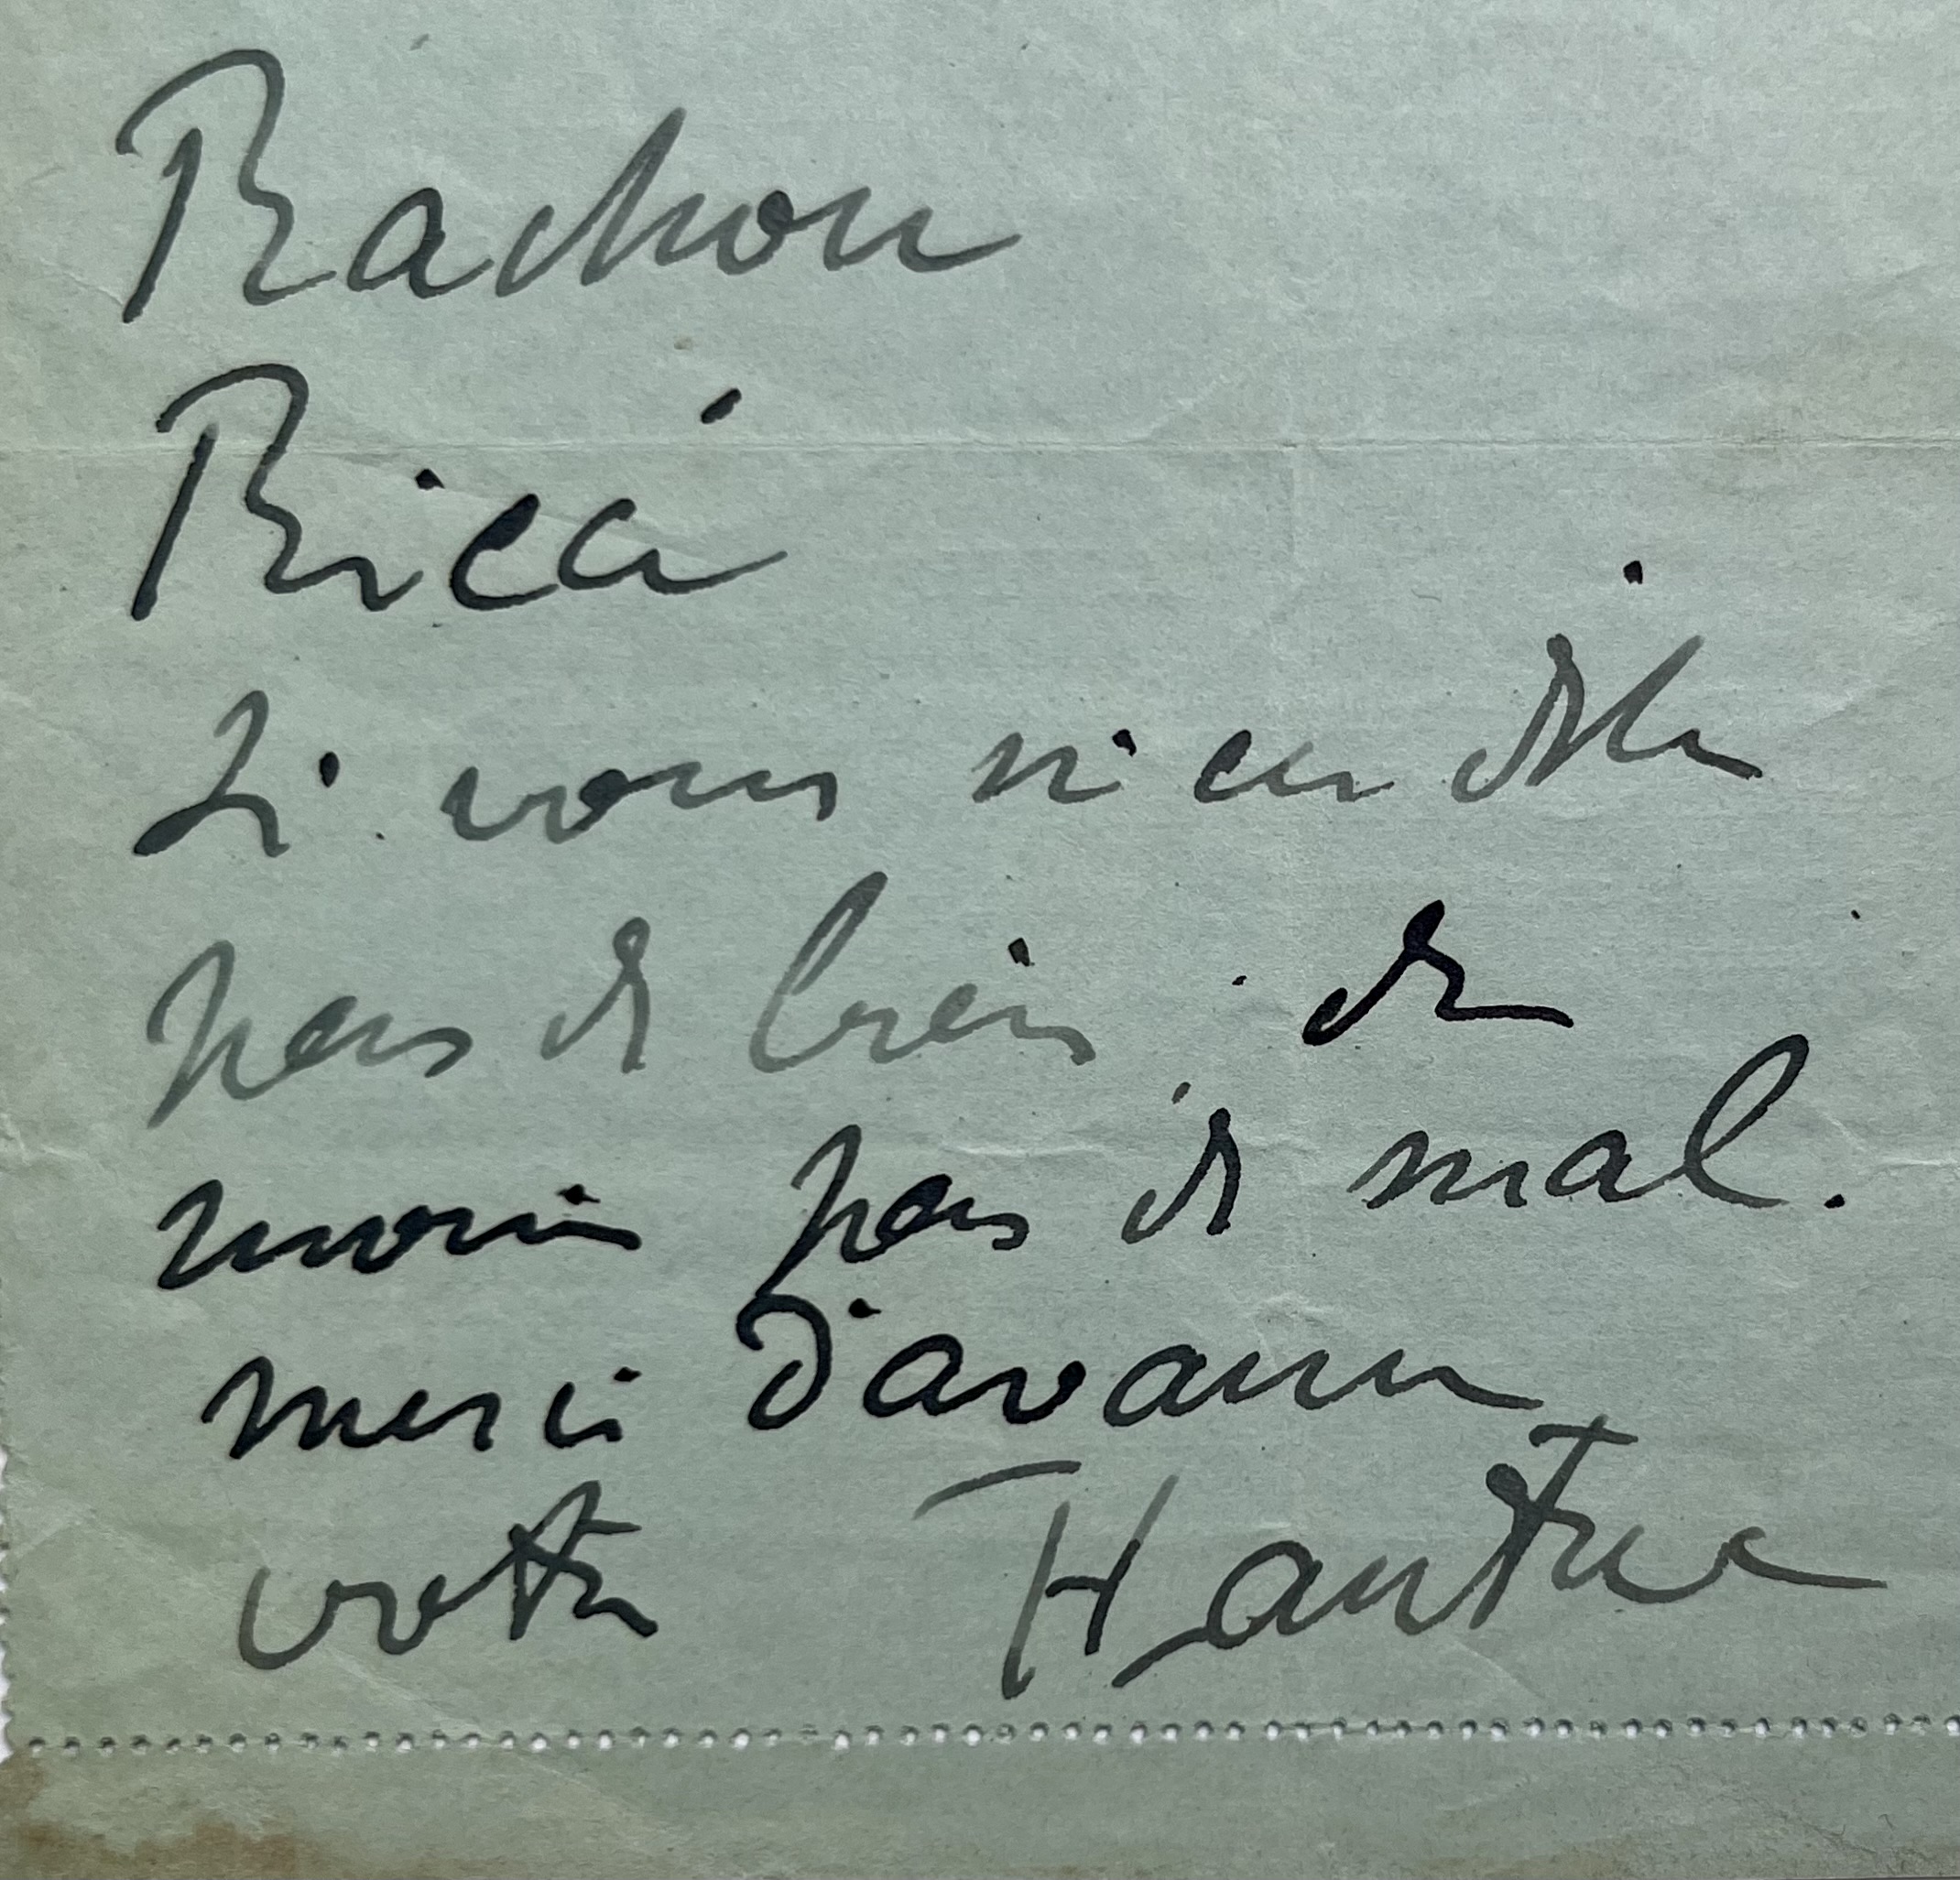 Rachou
Ricci
Si vous n'en dites
pas de bien du
moins pas de mal.
merci d'avance
votre HTLautrec